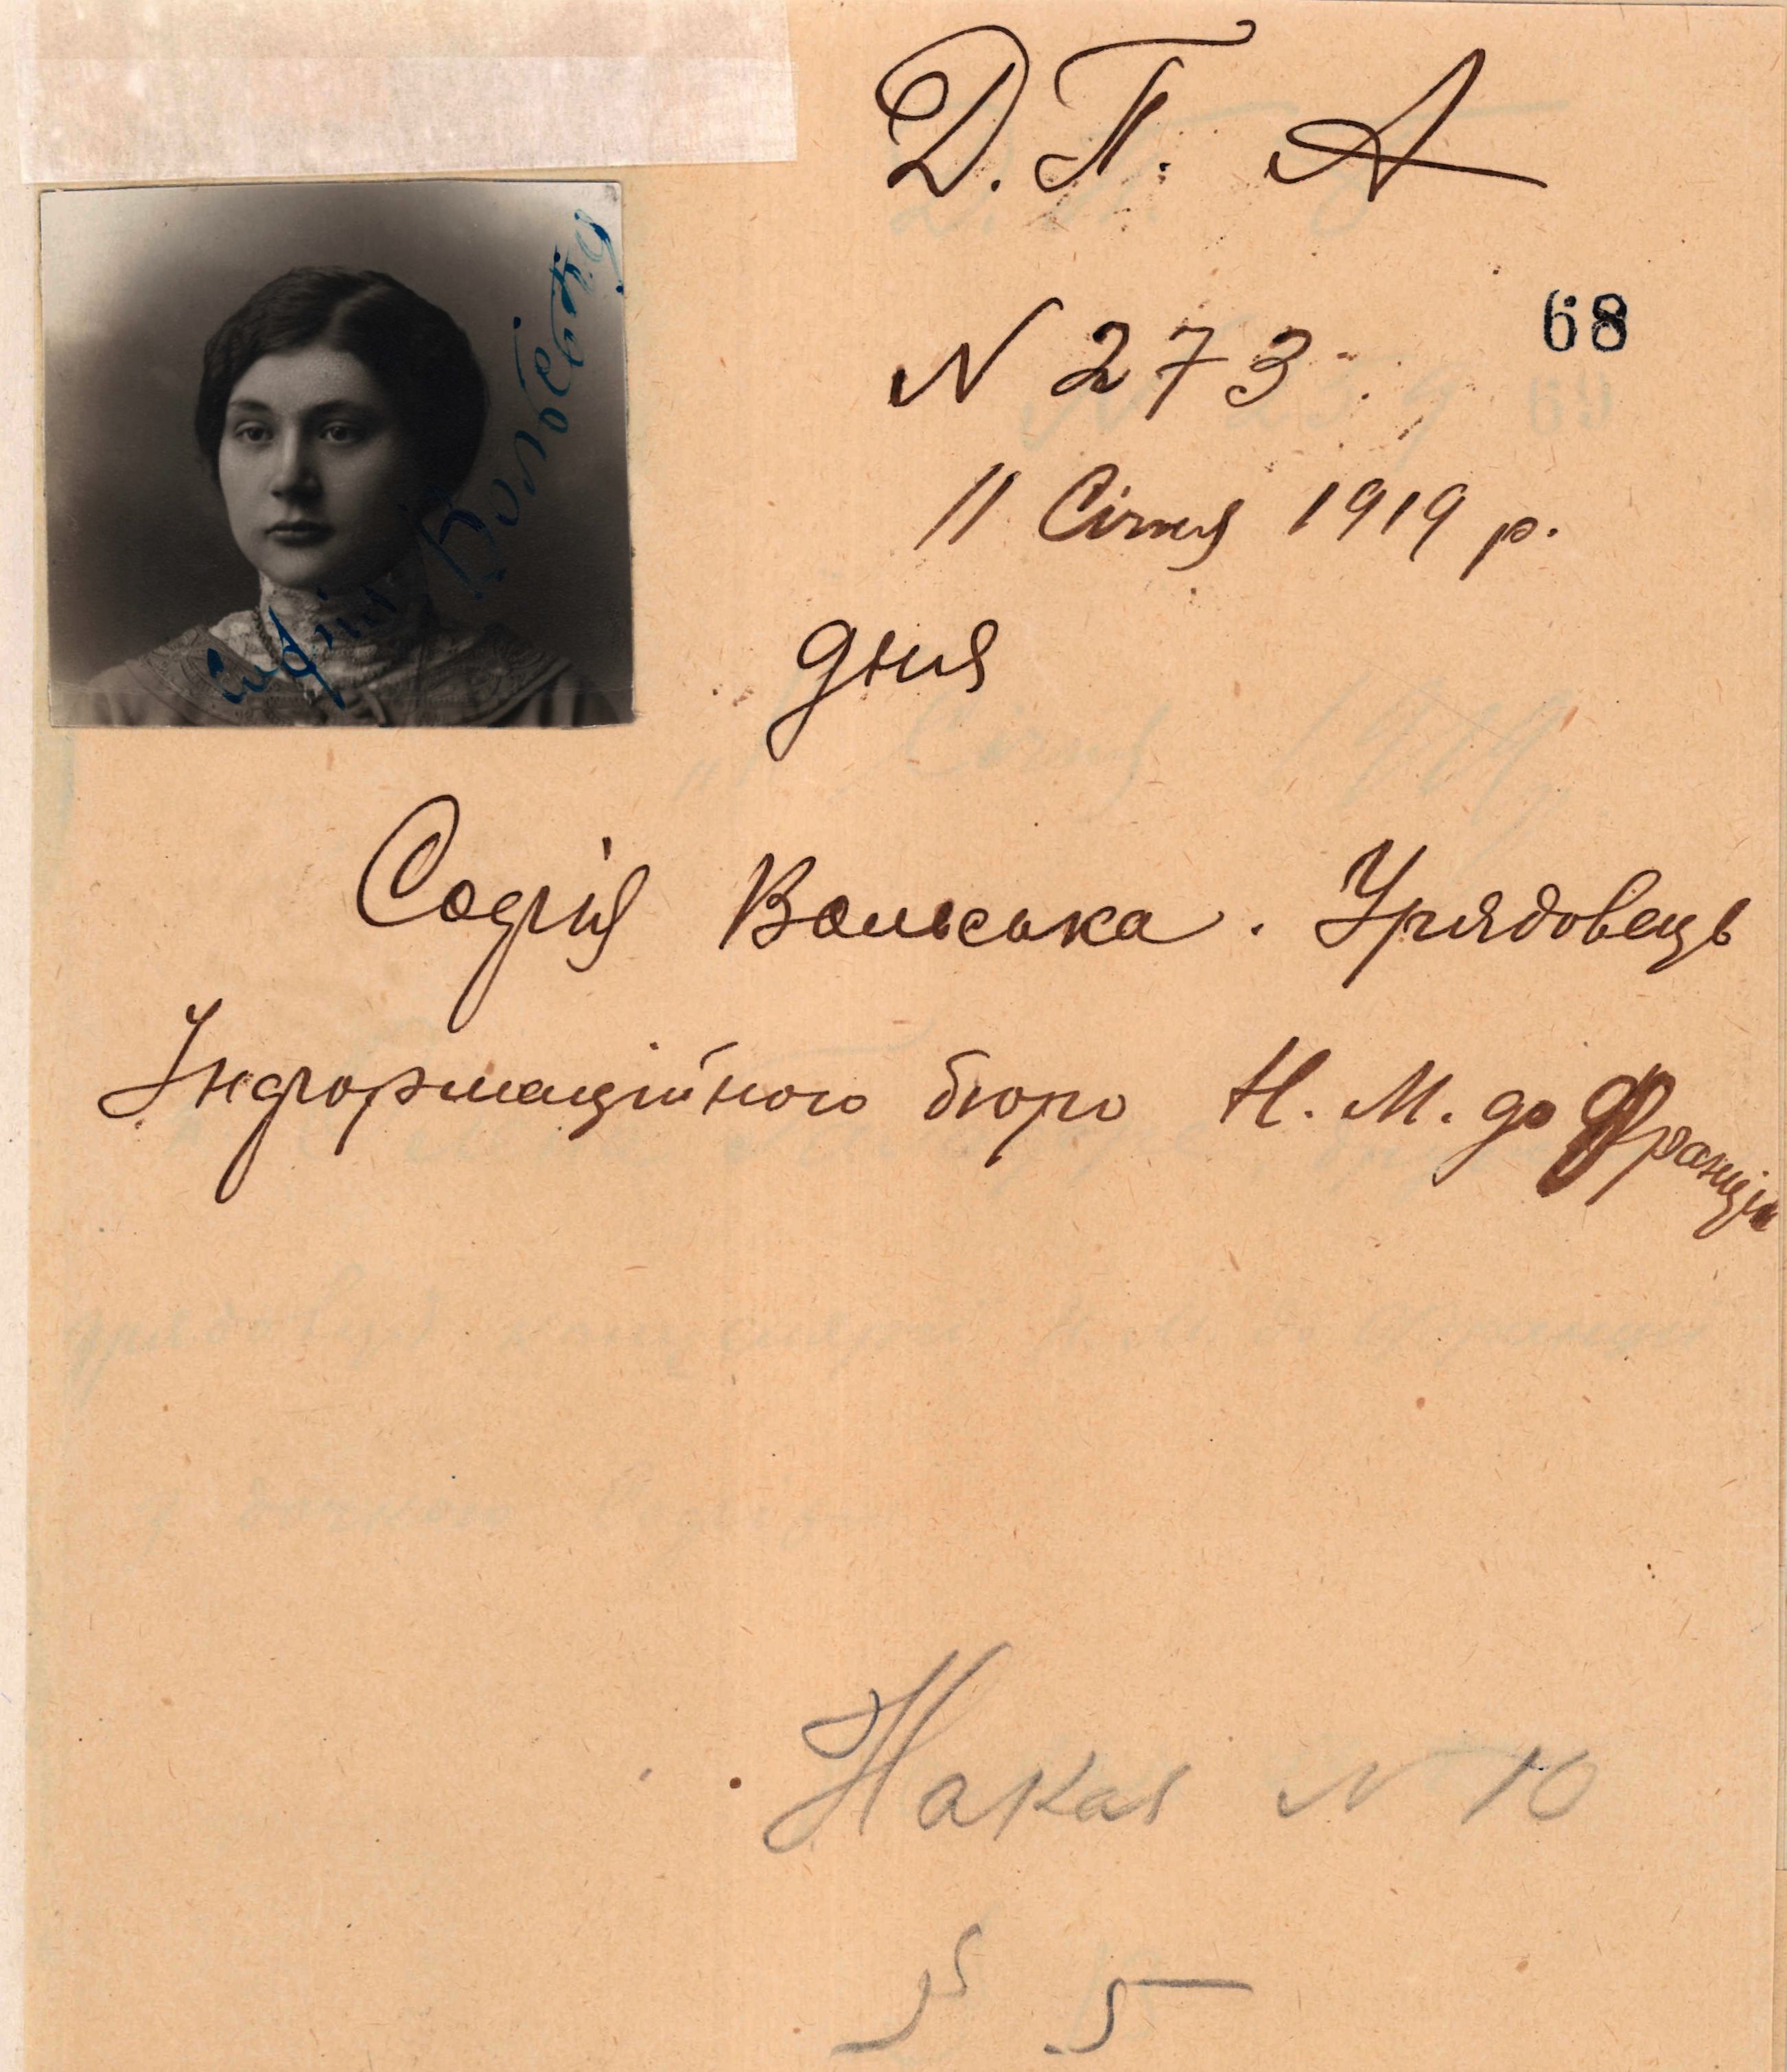 Д. П. А
68
N 273.
11 Січня 1919 р.
дня
Софія Вольська
Софія Вольська. Урядовець
Інформаційного бюро Н. М. до Франції
Наказ N 10
§ 5